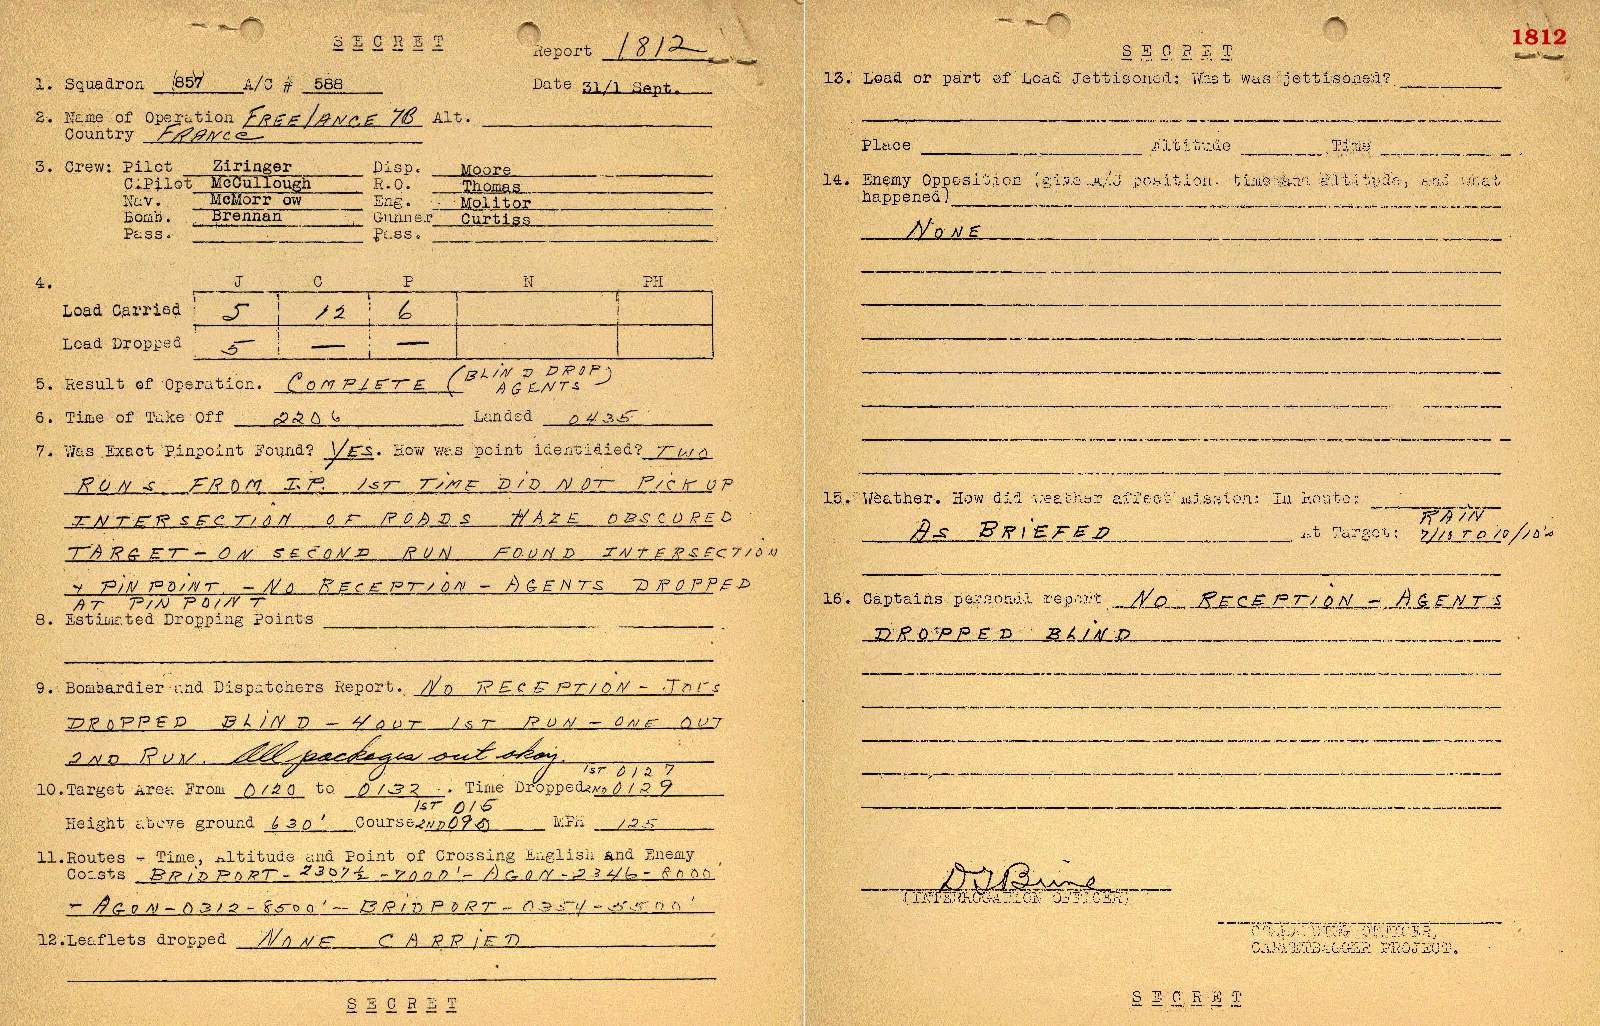 SECRET
Report 1812
1. Squadron 857 A/C # 588 Date 31/1 Sept.
2. Name of Operation FREELANCE 7B Alt.
Country FRANCE
3. Crew: Pilot Ziringer Disp. Moore
C.Pilot McCullough R.O. Thomas
Nav. McMorr ow Eng. Molitor
Bomb. Brennan Gunner Curtiss
Pass. Pass.
4. J C P N PH
Load Carried 5 12 6
Load Dropped 5 — —
5. Result of Operation. COMPLETE (BLIND DROP)
AGENTS
6. Time of Take Off 2206 Landed 0435
7. Was Exact Pinpoint Found? YES. How was point identidied? TWO
RUNS FROM I.P. 1ST TIME DID NOT PICK UP
INTERSECTION OF ROADS HAZE OBSCURED
TARGET - ON SECOND RUN FOUND INTERSECTION
+ PIN POINT - NO RECEPTION - AGENTS DROPPED
AT PIN POINT
8. Estimated Dropping Points
9. Bombardier and Dispatchers Report. NO RECEPTION - JOES
DROPPED BLIND - 4 OUT 1ST RUN - ONE OUT
2ND RUN. All packages out okay.
1ST 0127
10. Target Area From 0120 to 0132. Time Dropped 2ND 0129
1ST 015
Height above ground 630' Course 2ND 090 MPH 125
11. Routes - Time, Altitude and Point of Crossing English and Enemy
Coasts BRIDPORT - 2307½ - 7000' - AGON - 2346 - 8000
- AGON - 0312 - 8500' - BRIDPORT - 0354 - 5500'
12. Leaflets dropped NONE CARRIED
SECRET
1812
SECRET
13. Load or part of Load Jettisoned: What was jettisoned?
Place Altitude Time
14. Enemy Opposition (give A/C position, time and altitude, and what
happened)
NONE
15. Weather. How did weather affect mission: In Route:
RAIN
AS BRIEFED At Target: 7/10 TO 10/10's
16. Captains personal report NO RECEPTION - AGENTS
DROPPED BLIND
(INTERROGATION OFFICER)
COMMANDING OFFICER,
CARPETBAGGER PROJECT.
SECRET